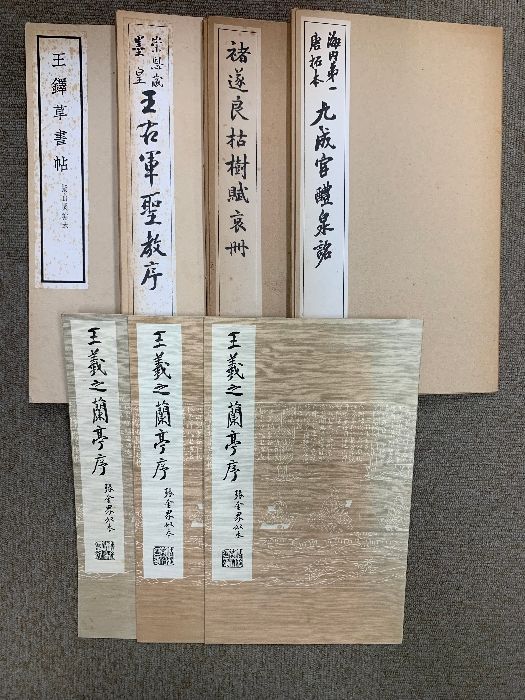 海内第一
唐拓本
九成宮醴泉銘
褚遂良枯樹賦哀冊
墨皇
王右軍聖教序
王鐸草書帖
王羲之蘭亭序
張金界奴本
王羲之蘭亭序
張金界奴本
王羲之蘭亭序
張金界奴本